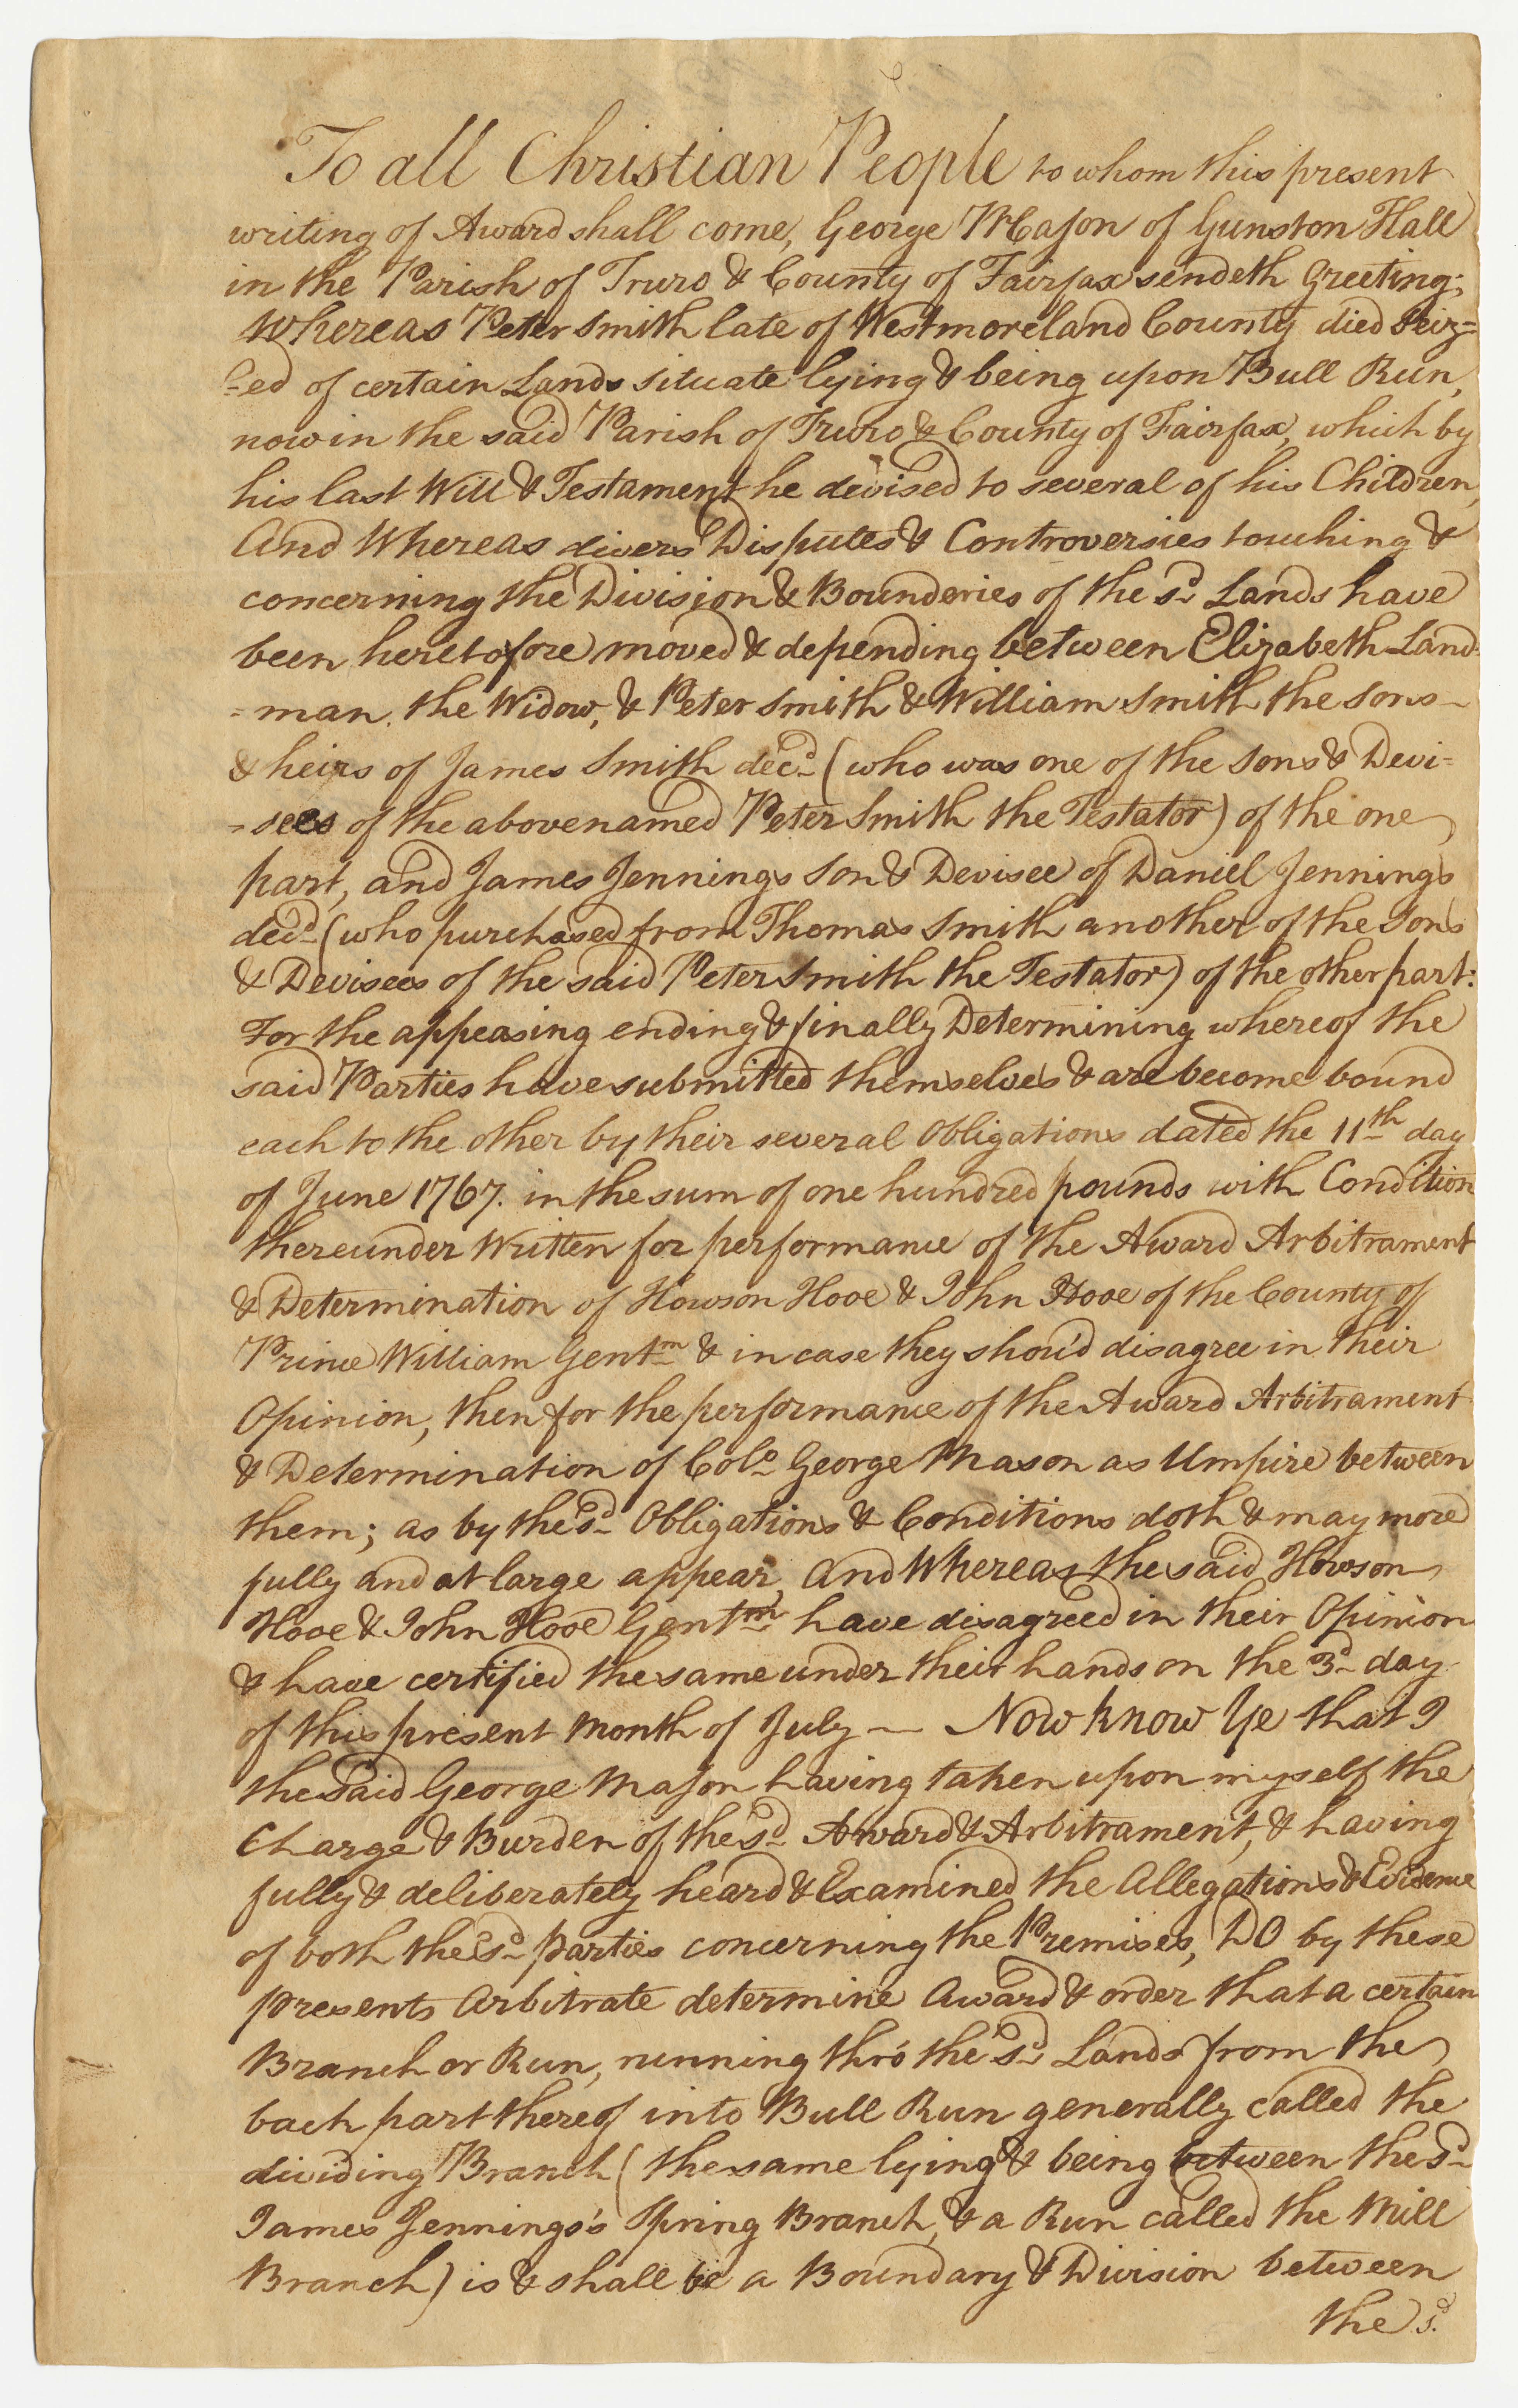 To all Christian People to whom this present
writing of Award shall come, George Mason of Gunston Hall
in the Parish of Truro & County of Fairfax sendeth Greeting;
Whereas Peter Smith late of Westmoreland County died Seiz=
=ed of certain Lands situate lying & being upon Bull Run,
now in the said Parish of Truro & County of Fairfax, which by
his last Will & Testament he devised to several of his Children,
And Whereas divers Disputes & Controversies touching &
concerning the Division & Bounderies of the sd. Lands have
been heretofore moved & depending between Elizabeth Land=
=man, the Widow, & Peter Smith & William Smith the sons
& heirs of James Smith decd. (who was one of the Sons & Devi=
=sees of the abovenamed Peter Smith the Testator) of the one
part, and James Jennings Son & Devisee of Daniel Jennings
decd. (who purchased from Thomas Smith another of the Sons
& Devisees of the said Peter Smith the Testator) of the other part:
For the appeasing ending & finally Determining whereof the
said Parties have submitted themselves & are become bound
each to the other by their several Obligations dated the 11th day
of June 1767. in the sum of one hundred pounds with Condition
thereunder Written for performance of the Award Arbitrament
& Determination of Howson Hooe & John Hooe of the County of
Prince William Gentm. & in case they shou'd disagree in their
Opinion, then for the performance of the Award Arbitrament
& Determination of Colo. George Mason as Umpire between
them; as by the sd. Obligations & Conditions doth & may more
fully and at large appear, And Whereas the said Howson
Hooe & John Hooe Gentm. have disagreed in their Opinion
& have certified the same under their hands on the 3d. day
of this present Month of July — Now know Ye that I
the said George Mason having taken upon myself the
Charge & Burden of the sd. Award & Arbitrament, & having
fully & deliberately heard & Examined the Allegations & Evidence
of both the sd. parties concerning the Premises, DO by these
presents Arbitrate determine Award & order that a certain
Branch or Run, running thro' the sd. Lands from the
back part thereof into Bull Run generally called the
dividing Branch (the same lying & being between the sd.
James Jennings's Spring Branch, & a Run called the Mill
Branch) is & shall be a Boundary & Division between
the sd.